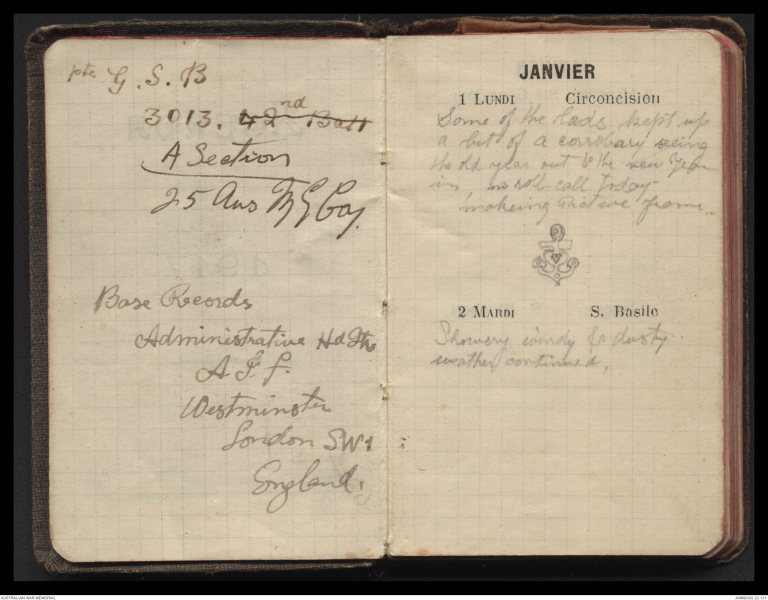 pte G. S. B
3013. 42nd Batt
A Section
25 Aus M G Coy.
Base Records
Administrative Hd Qts
A I F.
Westminster
London SW1
England.
JANVIER
1 LUNDI Circoncision
Some of the lads kept up
a bit of a corrobary seeing
the old year out & the new year
in, no roll call today
makeing picture frame
2 MARDI S. Basile
Showery windy & dusty
weather continued,
AUSTRALIAN WAR MEMORIAL